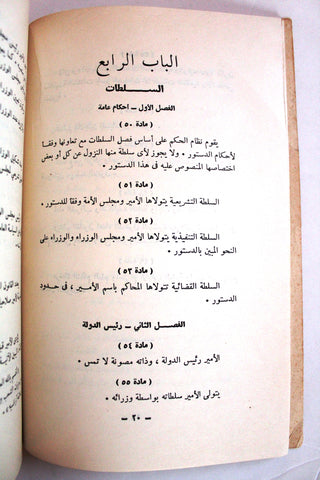 الباب الرابع
السلطات
الفصل الأول – أحكام عامة
( مادة ٥٠ )
يقوم نظام الحكم على أساس فصل السلطات مع تعاونها وفقا
لأحكام الدستور ٠ ولا يجوز لأى سلطة منها النزول عن كل أو بعض
اختصاصها المنصوص عليه فى هذا الدستور ٠
( مادة ٥١ )
السلطة التشريعية يتولاها الأمير ومجلس الأمة وفقا للدستور ٠
( مادة ٥٢ )
السلطة التنفيذية يتولاها الأمير ومجلس الوزراء والوزراء على
النحو المبين بالدستور ٠
( مادة ٥٣ )
السلطة القضائية تتولاها المحاكم باسم الأمير ، فى حدود
الدستور ٠
الفصل الثانى – رئيس الدولة
( مادة ٥٤ )
الأمير رئيس الدولة ، وذاته مصونة لا تمس ٠
( مادة ٥٥ )
يتولى الأمير سلطاته بواسطة وزرائه ٠
– ٢٠ –